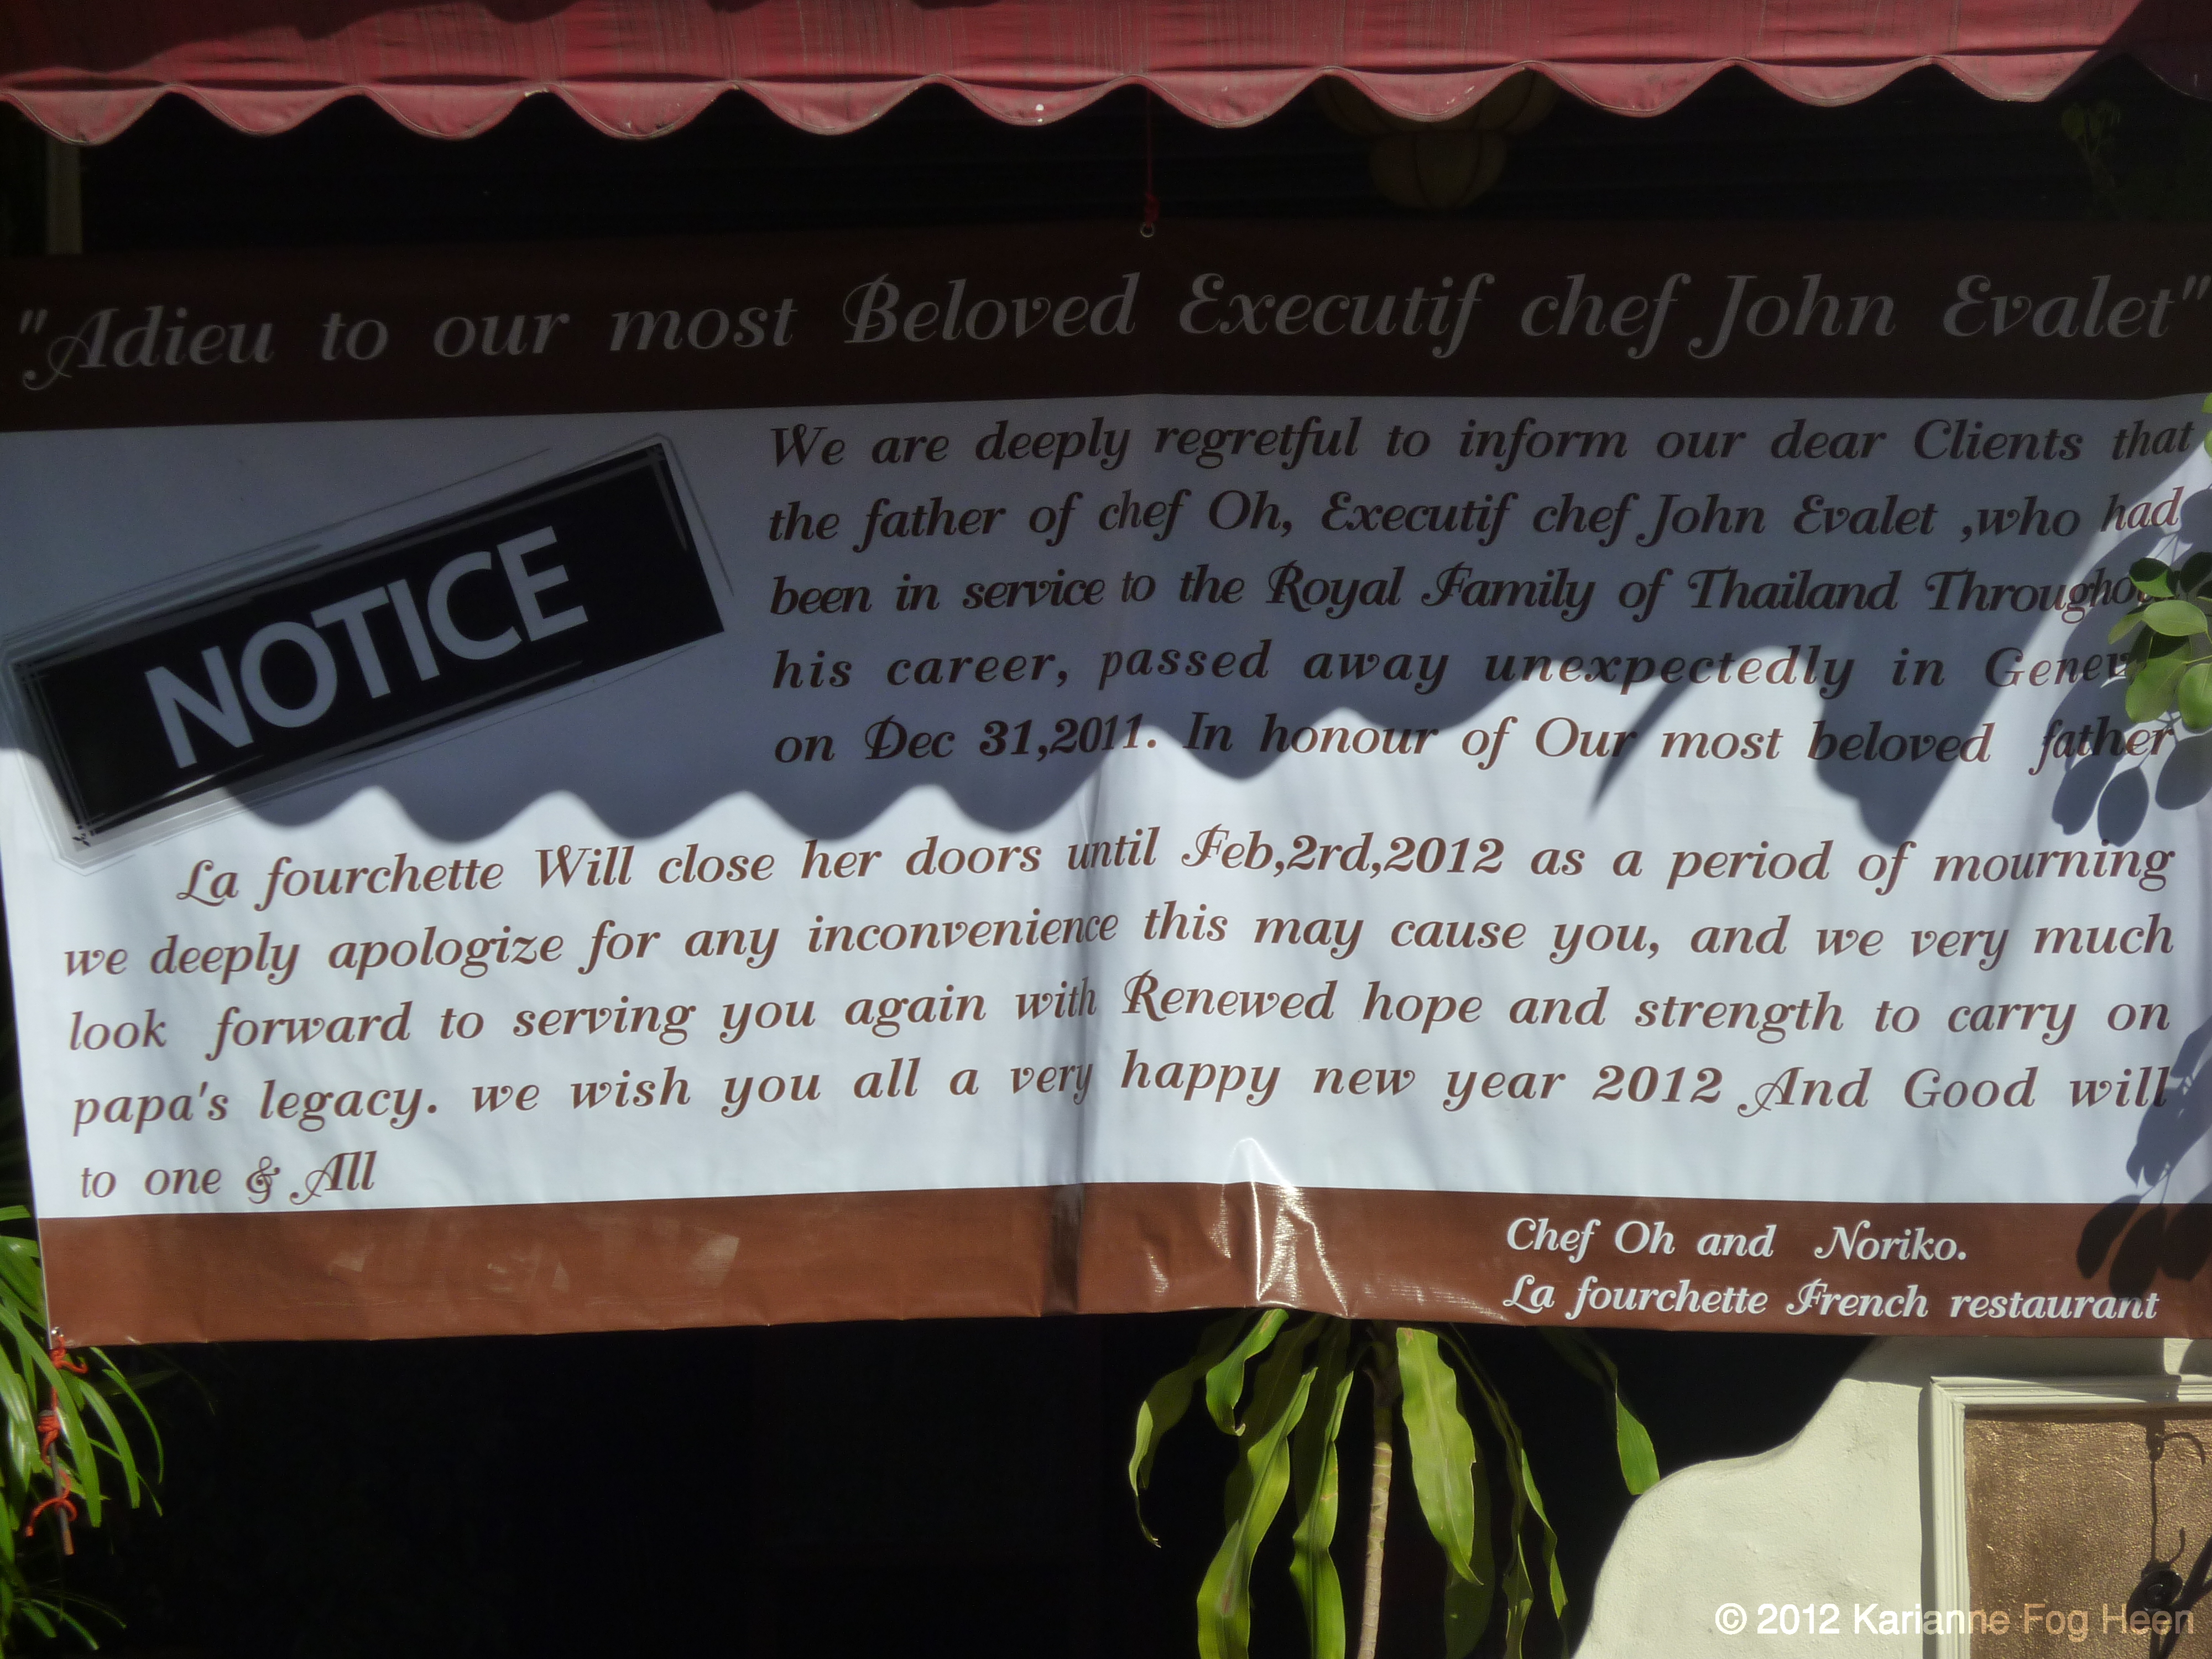 "Adieu to our most Beloved Executif chef John Evalet"
NOTICE
We are deeply regretful to inform our dear Clients that
the father of chef Oh, Executif chef John Evalet ,who had
been in service to the Royal Family of Thailand
his career, passed away unexpectedly in
on Dec 31,2011. In honour of Our most beloved father
La fourchette Will close her doors until Feb,2rd,2012 as a period of mourning
we deeply apologize for any inconvenience this may cause you, and we very much
look forward to serving you again with Renewed hope and strength to carry on
papa's legacy. we wish you all a very happy new year 2012 And Good will
to one & All
Chef Oh and Noriko.
La fourchette French restaurant
© 2012 Karianne Fog Heen